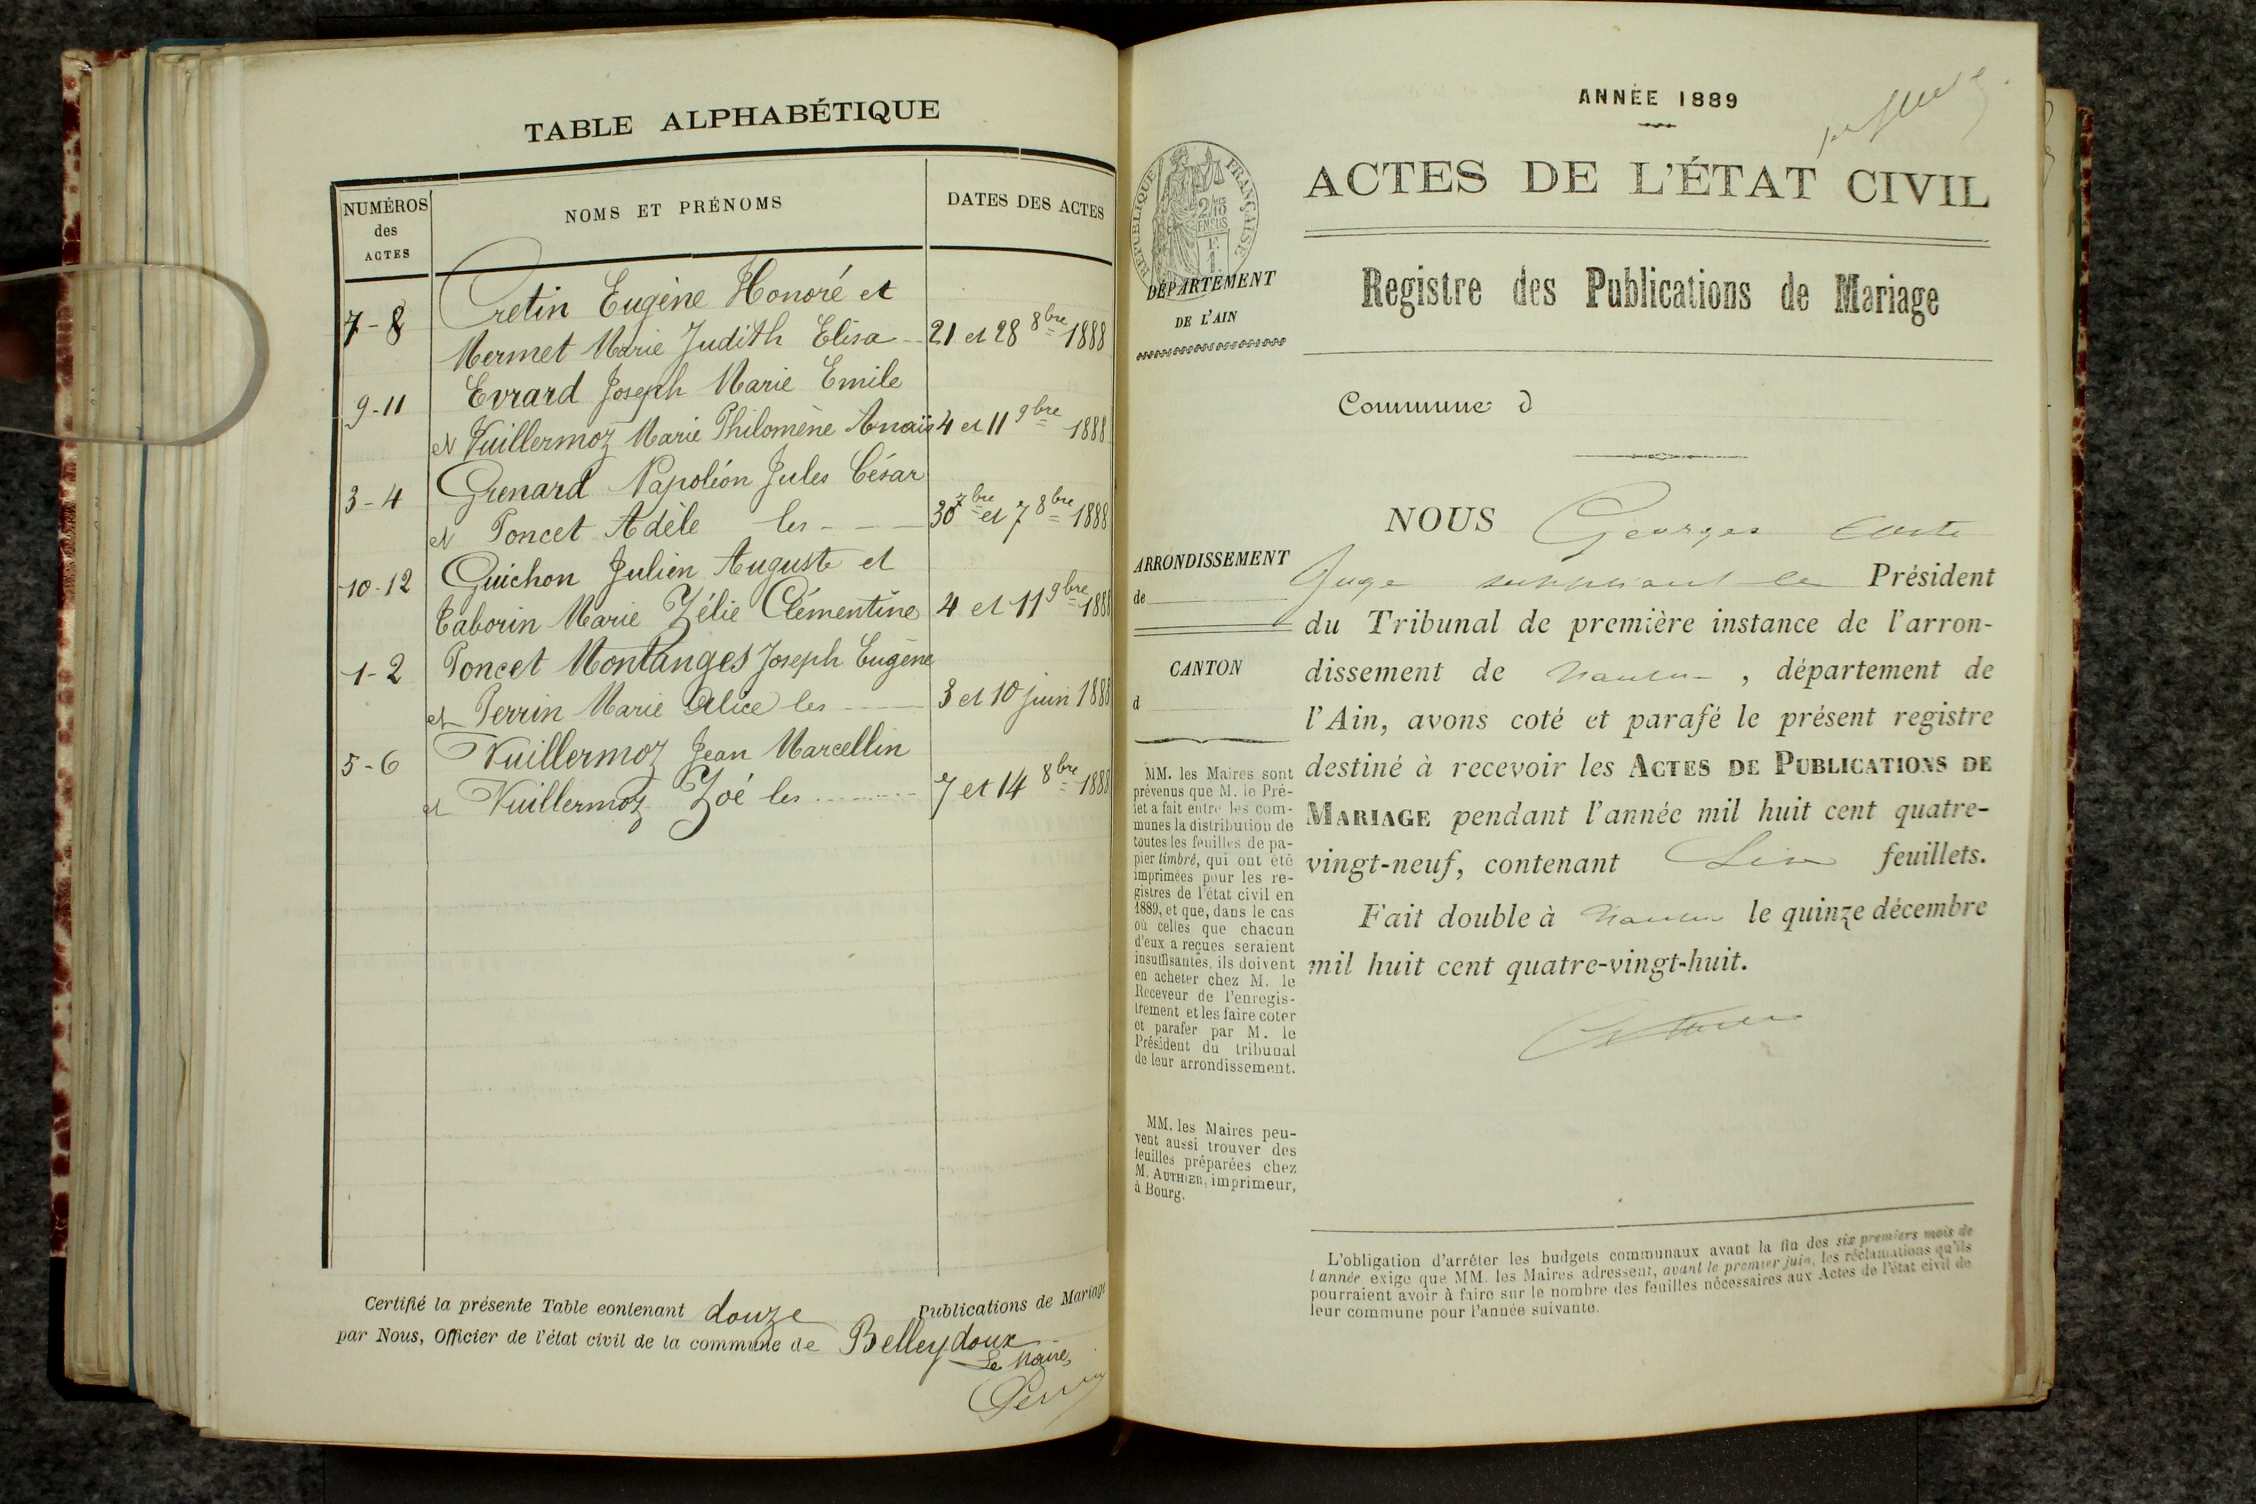 TABLE ALPHABÉTIQUE
NUMÉROS
des
ACTES
NOMS ET PRÉNOMS
DATES DES ACTES
7-8
Cretin Eugène Honoré et
Mermet Marie Judith Elisa
21 et 28 8bre 1888
9-11
Evrard Joseph Marie Emile
et Vuillermoz Marie Philomène Anaïs
4 et 11 9bre 1888
3-4
Grenard Napoléon Jules César
et Poncet Adèle les
30 7bre et 7 8bre 1888
10-12
Guichon Julien Auguste et
Taborin Marie Zélie Clémentine
4 et 11 9bre 1888
1-2
Poncet Montanges Joseph Eugène
et Perrin Marie Alice les
3 et 10 juin 1888
5-6
Vuillermoz Jean Marcellin
et Vuillermoz Zoé les
7 et 14 8bre 1888
Certifié la présente Table contenant douze Publications de Mariage
par Nous, Officier de l'état civil de la commune de Belleydoux
Le Maire,
Perrin
ANNÉE 1889
ACTES DE L'ÉTAT CIVIL
RÉPUBLIQUE FRANÇAISE
DÉPARTEMENT
DE L'AIN
Registre des Publications de Mariage
Commune d
ARRONDISSEMENT
de
CANTON
d
MM. les Maires sont
prévenus que M. le Pré-
fet a fait entre les com-
munes la distribution de
toutes les feuilles de pa-
pier timbré, qui ont été
imprimées pour les re-
gistres de l'état civil en
1889, et que, dans le cas
où celles que chacun
d'eux a reçues seraient
insuffisantes, ils doivent
en acheter chez M. le
Receveur de l'enregis-
trement et les faire coter
et parafer par M. le
Président du tribunal
de leur arrondissement.
MM. les Maires peu-
vent aussi trouver des
feuilles préparées chez
M. AUTHIER, imprimeur,
à Bourg.
NOUS Georges
Juge suppléant le Président
du Tribunal de première instance de l'arron-
dissement de Nantua, département de
l'Ain, avons coté et parafé le présent registre
destiné à recevoir les ACTES DE PUBLICATIONS DE
MARIAGE pendant l'année mil huit cent quatre-
vingt-neuf, contenant Six feuillets.
Fait double à Nantua le quinze décembre
mil huit cent quatre-vingt-huit.
L'obligation d'arrêter les budgets communaux avant la fin des six premiers mois de
l'année exige que MM. les Maires adressent, avant le premier juin, les réclamations qu'ils
pourraient avoir à faire sur le nombre des feuilles nécessaires aux Actes de l'état civil de
leur commune pour l'année suivante.